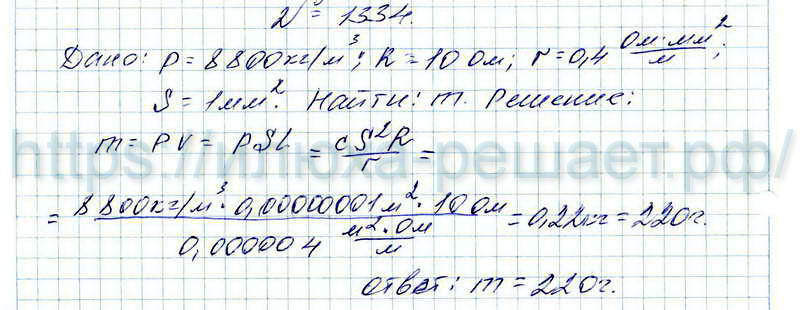 № 1334.
Дано: ρ = 8800кг/м³; R = 10 Ом; r = 0,4 Ом·мм²/м;
S = 1мм². Найти: m. Решение:
m = ρV = ρSL = cS²R/r =
https://илюха-решает.рф/
= 8800кг/м³ · 0,00000001м² · 10 Ом / 0,000004 м²·Ом/м = 0,22кг = 220г.
Ответ: m = 220г.